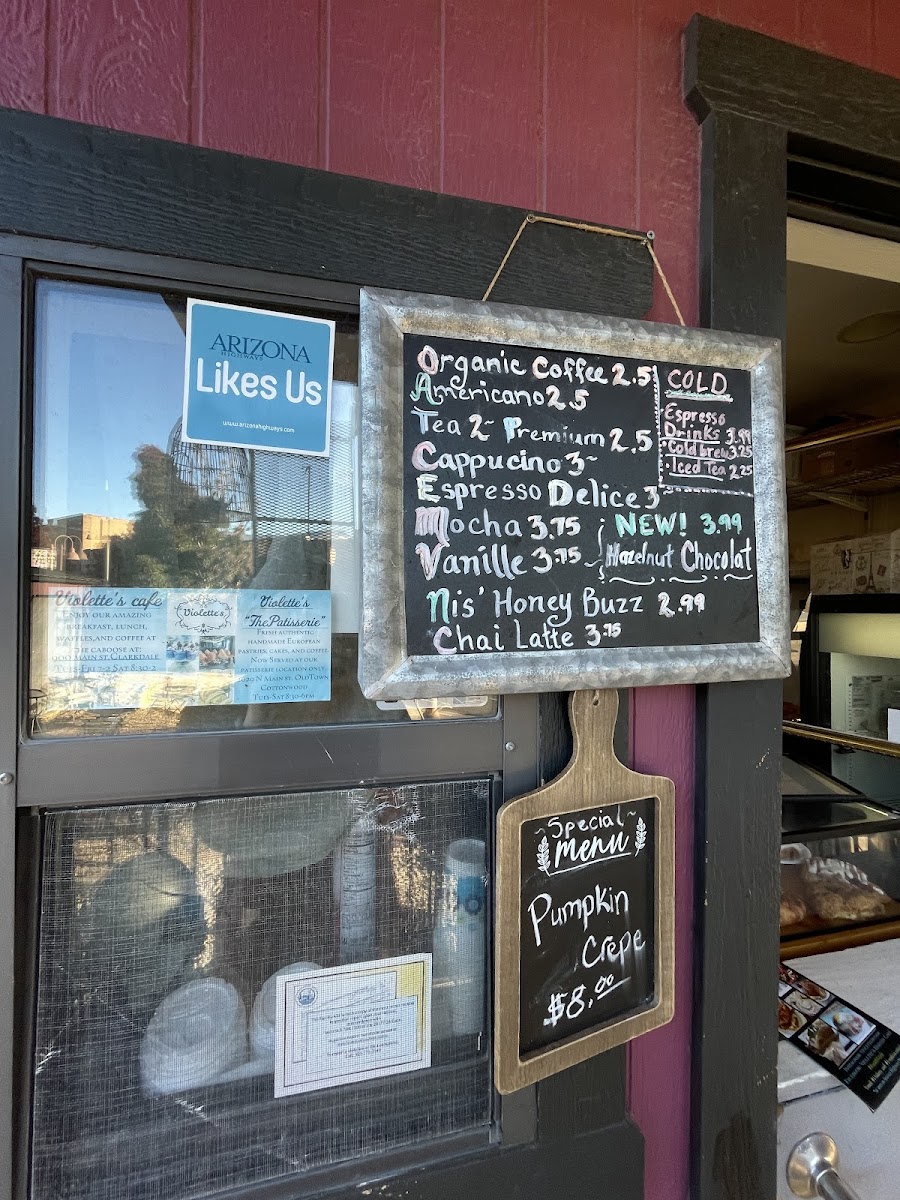 ARIZONA
HIGHWAYS
Likes Us
www.arizonahighways.com
Organic Coffee 2.5
Americano 2.5
Tea 2~ Premium 2.5
Cappucino 3~
Espresso Delice 3~
Mocha 3.75
Vanille 3.75
NEW! 3.99
Hazelnut Chocolat
Nis' Honey Buzz 2.99
Chai Latte 3.75
COLD
Espresso
Drinks 3.99
· Cold brew 3.25
· Iced Tea 2.25
Violette's cafe
Enjoy our amazing
breakfast, lunch,
waffles, and coffee at
the caboose at:
900 Main st. Clarkdale
Tues-Fri 7-2 Sat 8:30-2
Violette's
Violette's
"The Patisserie"
Fresh authentic
handmade European
pastries, cakes, and coffee.
Now Served at our
patisserie location only:
N Main st. Old Town
Cottonwood
Tues-Sat 8:30-6pm
~Special~
menu
Pumpkin
Crêpe
$8.00